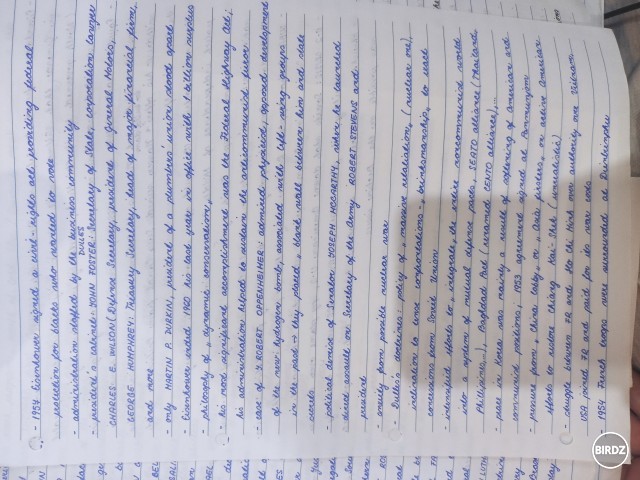 - 1957 Eisenhower signed a civil-rights act providing federal
protection for blacks who wanted to vote
- administration staffed by the business community
DULLES
president's cabinet: JOHN FOSTER: Secretary of State, corporation lawyer
CHARLES E. WILSON: Defence Secretary, president of General Motors,
GEORGE HUMPHREY: Treasury Secretary, head of major financial firm,
and more
- only MARTIN P. DURKIN, president of a plumbers' union stood apart
- Eisenhower ended 1960 his last year in office with 1 billion surplus
philosophy of „dynamic conservatism„
- his most significant accomplishment was the Federal Highway Act;
his administration helped to sustain the anticommunist furor
- case of J. ROBERT OPPENHEIMER: admired physicist, opposed development
of the new hydrogen bomb; associated with left-wing groups
in the past → they placed „blank wall between him and state
secrets
- political demise of Senator JOSEPH MCCARTHY, when he launched
direct assault on Secretary of the Army ROBERT STEVENS and
president
anxiety from possible nuclear war
- Dulles's doctrines: policy of „massive retaliation„ (nuclear one),
inclination to tense confrontations - „brinksmanship„ to exact
concessions from Soviet Union
- intensified efforts to „integrate„ the entire noncommunist world
into a system of mutual defense pacts, SEATO alliance (Thailand
Philippines,...), Baghdad Pact (renamed CENTO alliance),...
- peace in Korea was mainly a result of softening of American and
communist positions, 1953 agreement signed at Panmunjom
- pressure from „China lobby„ or „Asia firsters„ on active American
efforts to restore Chiang Kai-Shek (nationalists)
- struggle between FR and Ho Chi Minh over authority over Vietnam
USA joined FR and paid for its war costs
1954 French troops were surrounded at Dienbienphu
BIRDZ